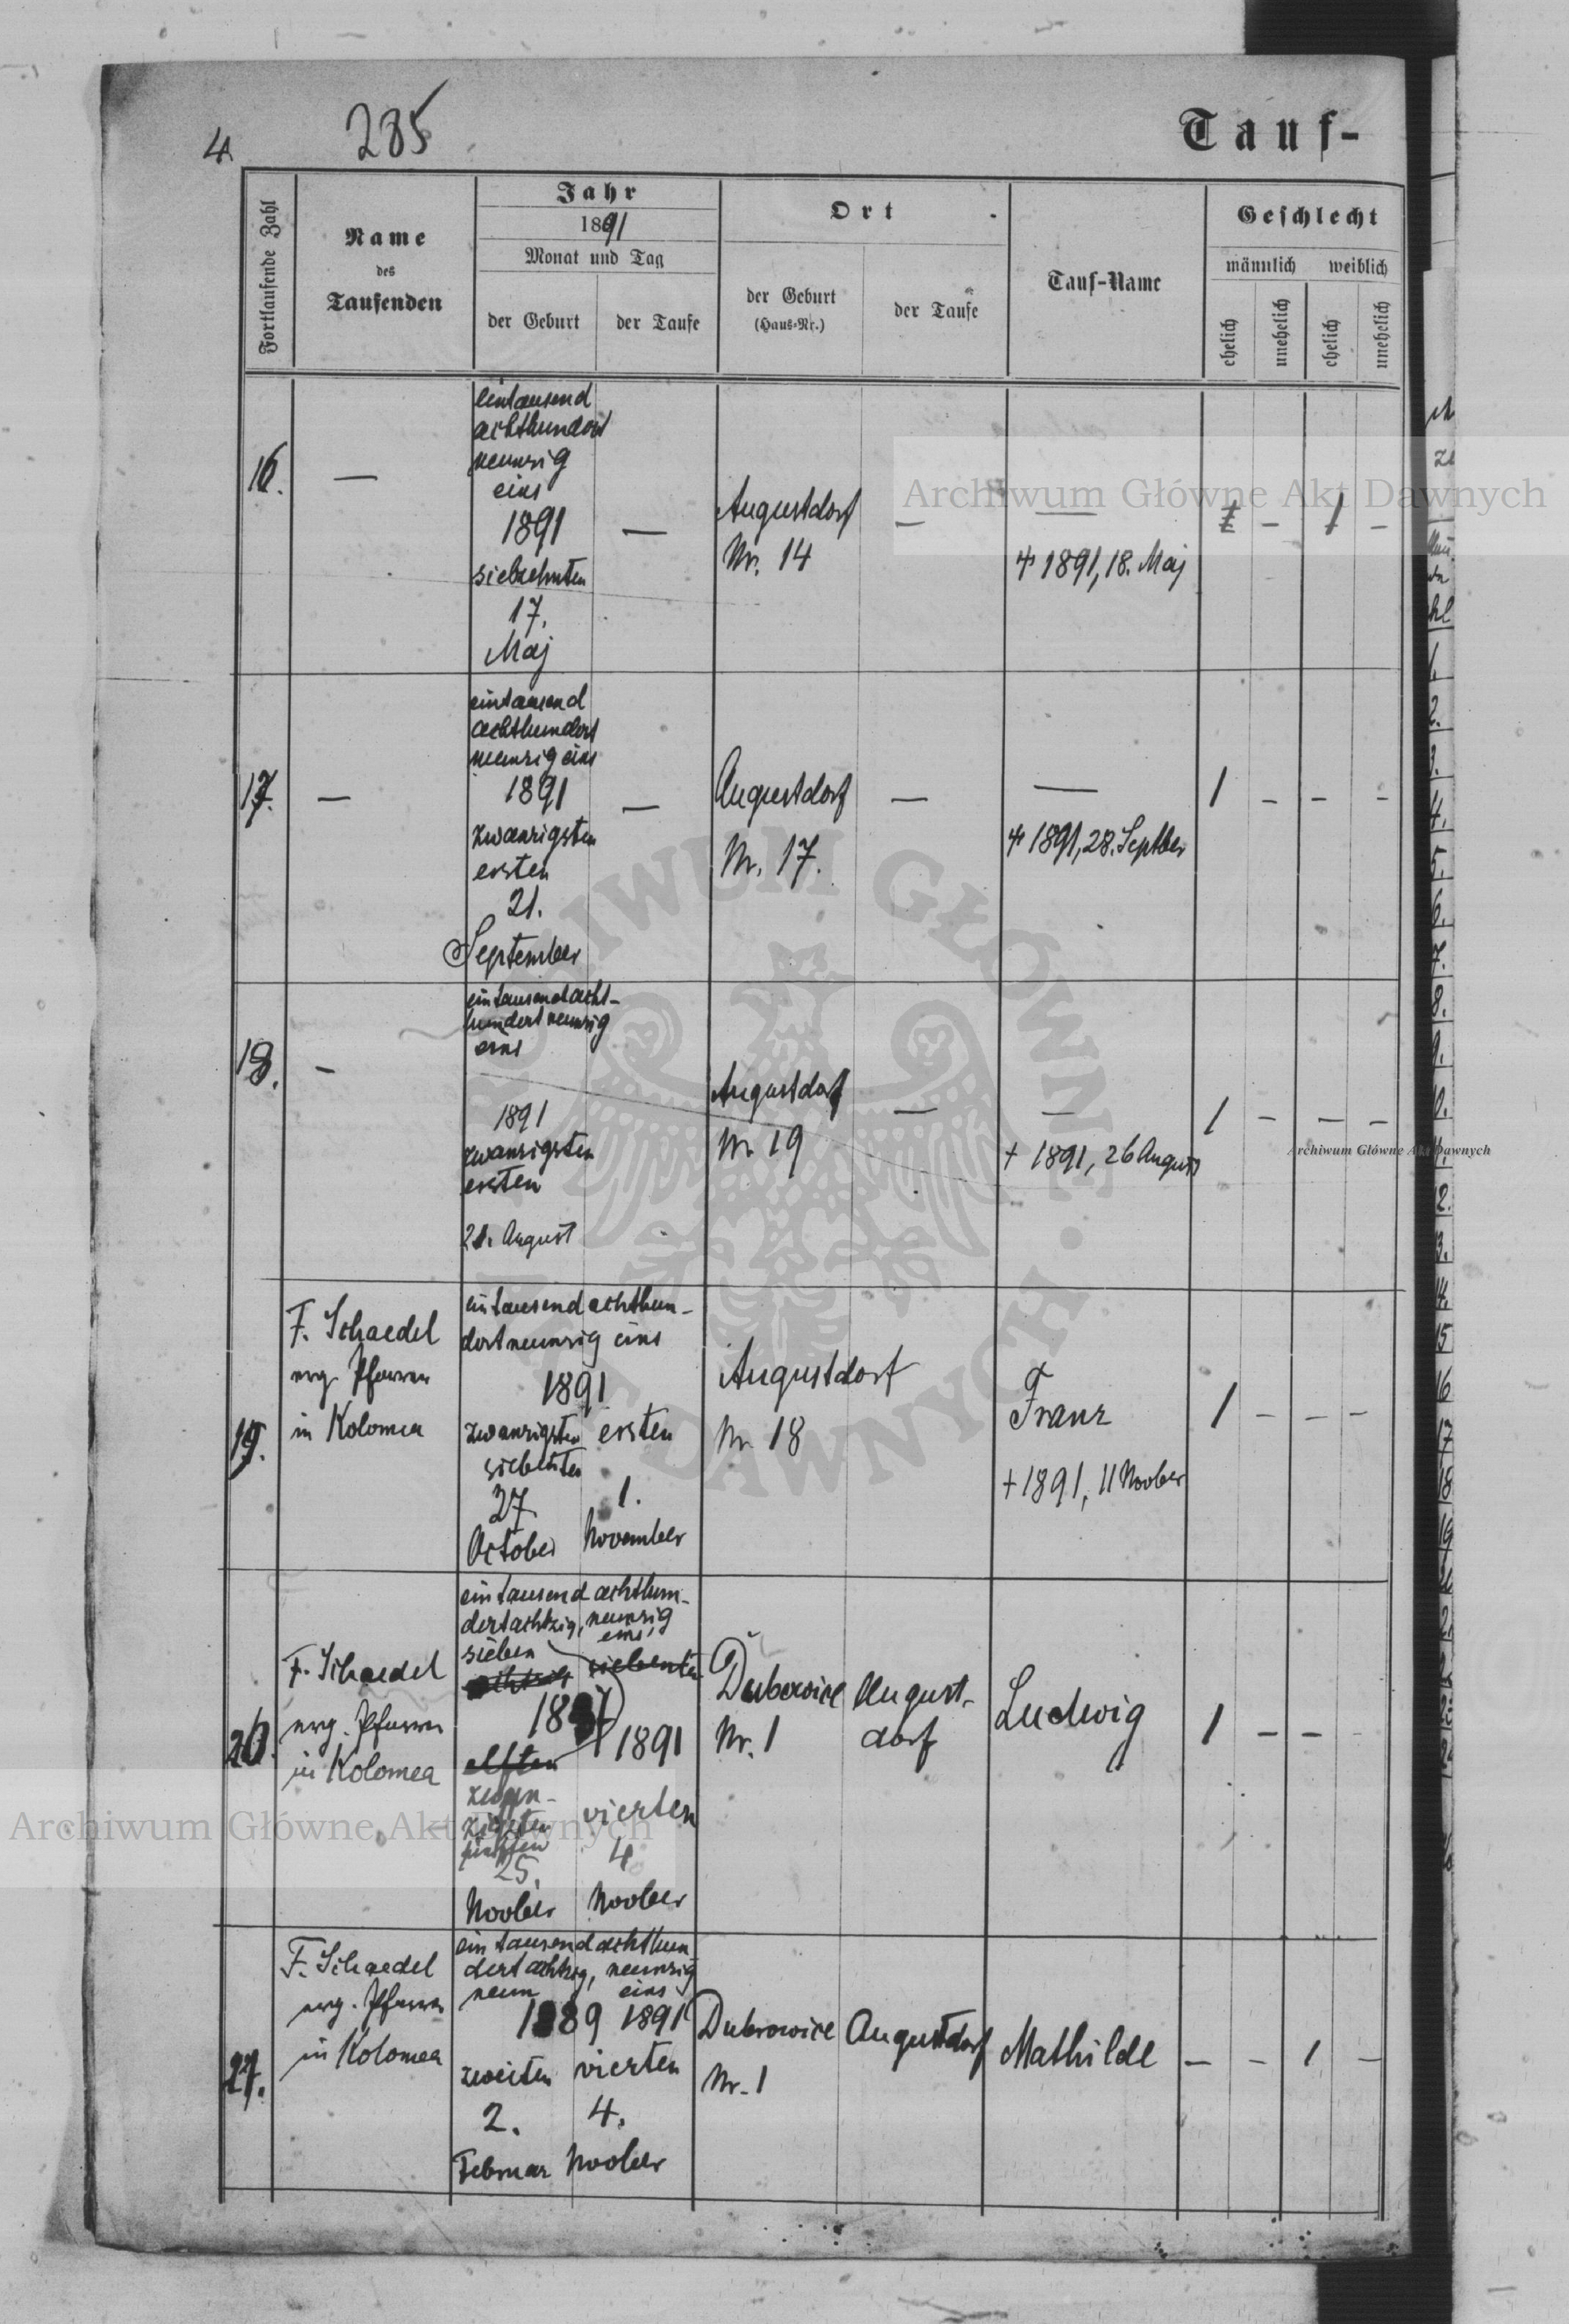 4
285
Tauf-
Fortlaufende Zahl
Name
des
Taufenden
Jahr
1891
Monat und Tag
der Geburt
der Taufe
Ort
der Geburt
(Haus-Nr.)
der Taufe
Tauf-Name
Geschlecht
männlich
weiblich
ehelich
unehelich
ehelich
unehelich
16.
—
eintausend
achthundert
neunzig
eins
1891
siebzehnten
17.
Maj
—
Augustdorf
Nr. 14
—
—
+ 1891, 18. Maj
1 - 1 -
17.
—
eintausend
achthundert
neunzig eins
1891
zwanzigsten
ersten
21.
September
—
Augustdorf
Nr. 17.
—
—
+ 1891, 28. Septber
1 - - -
18.
—
eintausendacht-
hundert neunzig
eins
1891
zwanzigsten
ersten
21. August
Augustdorf
Nr 19
—
—
+ 1891, 26 August
1 - - -
19.
F. Schaedel
evg. Pfarrer
in Kolomea
eintausend achthun-
dert neunzig eins
1891
zwanzigsten
siebenten
27
October
ersten
1.
November
Augustdorf
Nr 18
Franz
+ 1891, 11 Novber
1 - - -
20.
F. Schaedel
evg. Pfarrer
in Kolomea
eintausend achthun-
dertachtzig, neunzig
sieben eins
siebenten
1887
elften
zwan-
zigsten
fünften
25.
Novber
1891
vierten
4
Novber
Dubowice
Nr. 1
August-
dorf
Ludwig
1 - - -
21.
F. Schaedel
evg. Pfarrer
in Kolomea
eintausend achthun
dert achtzig, neunzig
neun eins
1889 1891
zweiten vierten
2. 4.
Februar Novber
Dubrowice
Nr. 1
Augustdorf
Mathilde
- - 1 -
Archiwum Główne Akt Dawnych
Archiwum Główne Akt Dawnych
Archiwum Główne Akt Dawnych
ARCHIWUM GŁÓWNE · AKT DAWNYCH ·